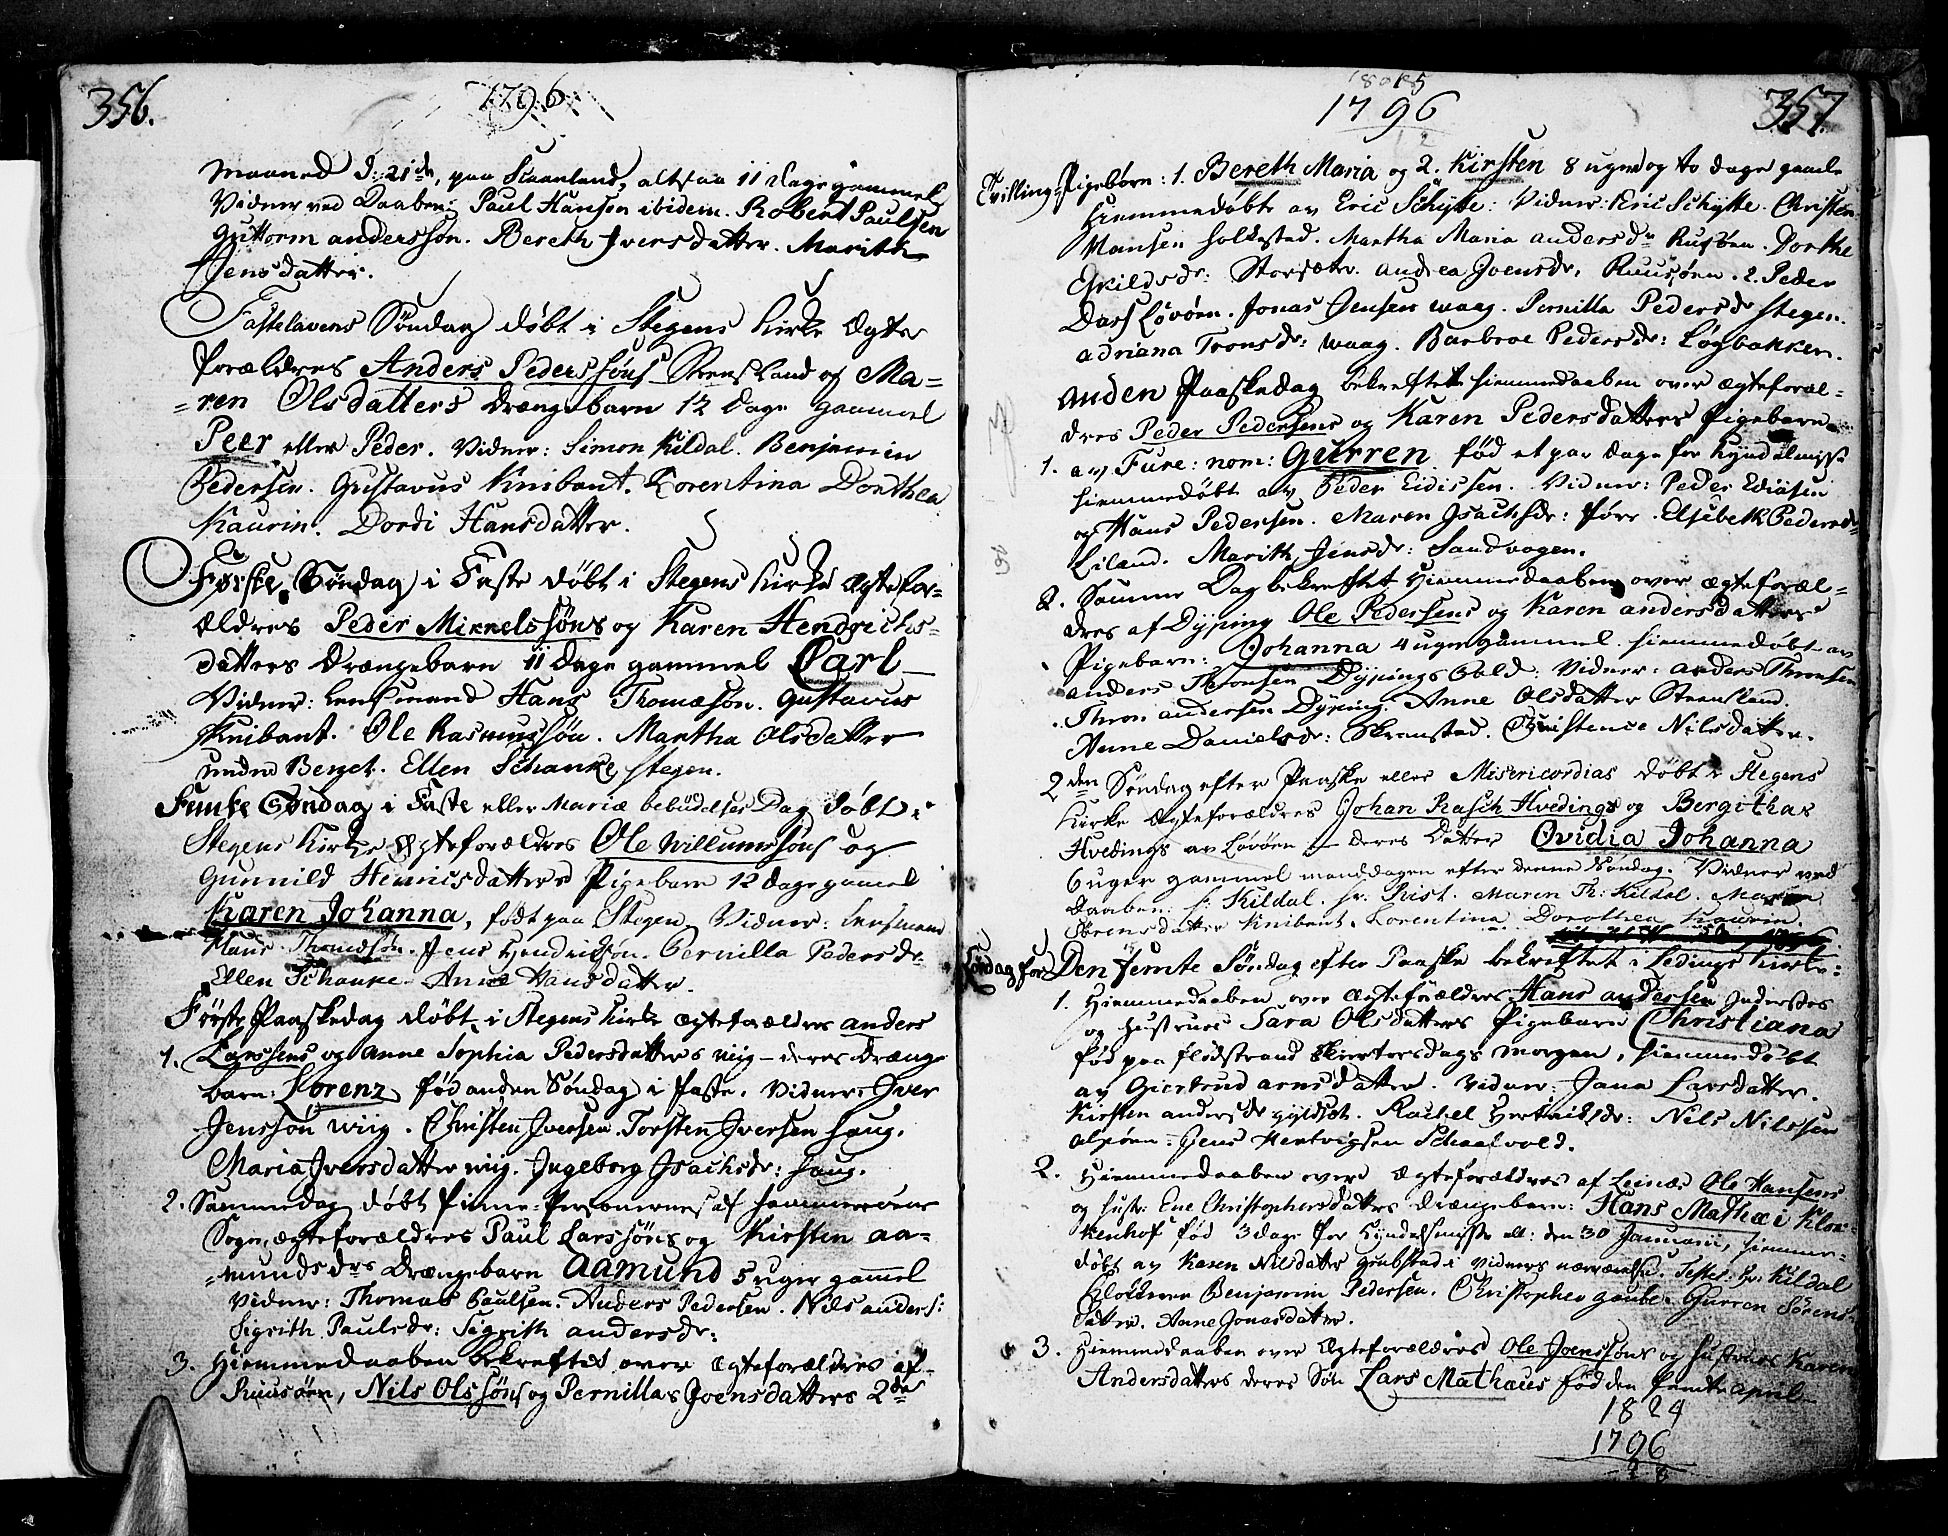 356.
1796
Maaned d: 21de, paa Skaanland, altsaa 11 dage gammel
Vidner ved Daaben: Paul Hanson ibidem. Robert Paulsen
Guttorm anderssøn. Bereth Iversdatter. Marith
Jensdatter.
Fastelavens Søndag døbt i Stegens Kirke Ægte
forældres Anders Pederssøns Steensland og Ma=
=ren Olsdatters drængebarn 12 dage gammel
Peer eller Peder. Vidner: Simon Kildal. Benjamin
Pedersen. Gustavus Knibant. Lorentina Dorthea
Kaurin. Dordi Hansdatter.
Første Søndag i Faste døbt i Stegens Kirke Ægtefor=
ældres Peder Mikkelssøns og Karen Hendrichs=
datters drængebarn 11 dage gammel Carl
Vidner: Lensmand Hans Thomæsøn. Gustavus
Knibant. Ole Rasmussøn. Martha Olsdatter
Berget. Ellen Schanke Stegen.
Femte Søndag i Faste eller Mariæ bebudelses Dag døbt i
Stegens Kirke Ægteforældres Ole Willumssøns og
Gunnild Henricsdatters Pigebarn 12 dage gammel
Karen Johanna, født paa Stegen. Vidner: Lensmand
Hans Thomæsøn. Jens Hendrikssøn. Pernilla Pedersdr
Ellen Schanke. Anne Hansdatter.
Første Paaskedag døbt i Stegens Kirke Ægteforældres anders
1. Larssens og Anne Sophia Pedersdatters wiig - deres drænge
barn: Lorenz, fød anden Søndag i Faste. Vidner: Iver
Jenssøn wiig. Christen Iversen. Torsten Iversen Haug.
Maria Iversdatter wiig. Ingeborg Isachsdr: Haug.
2. Samme dag døbt af Hammerøens
Sogn, ægteforældres Paul Larssøns og Kirsten Aa=
=mundsdrs drængebarn Aamund 5 uger gammel
Vidner: Thomas Paulsen. Anders Pedersen. Nils anders:
Sigrith Paulsdr: Sigrith andersdr:
3. Hiemmedaaben bekreftet over ægteforældres af
Ruusøen, Nils Olssøns og Pernillas Joensdatters 2de
1805
1796
357.
Tvilling=Pigebørn: 1. Bereth Maria og 2. Kirsten 8 uger og to dage gamle
Hiemmedøbte av Eric Schytte: Vidner: Eric Schytte. Christen
Hansen Holkestad. Martha Maria andersdr Rusøen. Dorthe
Eskildsdr: Storsæter. Andrea Joensdr, Ruusøen. 2. Peder
Dass Løvøen. Jonas Jensen waag. Pernilla Pedersdr Stegen.
Adriana Tronsdr: waag. Barbroe Pedersdr: Løgbakken.
Anden Paaskedag bekreftet hiemmedaaben over ægteforæl=
dres Peder Pedersens og Karen Pedersdatters Pigebarn
1. av Fure: nom: Gurren fød et par dage for Kyndelmisse
hiemmedøbt av Peder Eidissen. Vidner: Peder Ediasen
og Hans Pedersen. Maren Isachsdr: Elsebeth Pedersdr
Liland. Marith Jensdr: Sandvogen.
2. Samme Dag bekreftet Hiemmedaaben over ægteforæl=
dres af Dyping Ole Pedersens og Karen andersdatters
Pigebarn: Johanna 4 uger gammel hiemmedøbt av
anders Thronsen Dyping. Vidner: anders Thronsen
Thron andersen Dyping. Anne Olsdatter Steensland.
Anne Danielsdr: Skremstad. Christence Nilsdatter.
2den Søndag efter Paaske eller Misericordias døbt i Stegens
Kirke Ægteforældres Johan Rasch Hvedings og Bergithas
Hvedings av Løvøen - deres Datter Ovidia Johanna
6 uger gammel manddagen efter denne Søndag. Vidner ved
daaben: hr Kildal. hr. Rist. Maren Th: Kildal. Maren
Sørensdatter Knibant. Lorentina Dorothea Kaurin.
Søndag for Den femte Søndag efter Paaske bekreftet i Ledings Kirke:
1. Hiemmedaaben over Ægteforældres Hans andersen Inderøes
og Hustrues Sara Olsdatters Pigebarn Christiana
fød paa Flødstrand skiertorsdags morgen, hiemmedøbt
av Giertrud arnsdatter. Vidner: Jana Larsdatter.
Kirsten andersdr. Rachel Hertviksdr: Nils Nilssen
Jens Hertvigsen Schaalvold.
2. Hiemmedaaben over Ægteforældres af Leinæs Ole Hansens
og Hustr: Ene Christophersdatters drængebarn: Hans Mathæi Klok=
kenhof fød 3 dage for Kyndelsmisse ell: den 30 Januarii, hiemme=
døbt av Karen Nilsdatter Grubstad i Vidners nærværelse. Testes: hr: Kildal
Klokkeren Benjamin Pedersen. Christopher Gaube. Gurren Sørens=
datter. Anne Jonasdatter.
3. Hiemmedaaben over Ægteforældres Ole Joenssøns og Hustrues Karen
Andersdatters deres Søn Lars Mathæus fød den femte april
1824
1796
28